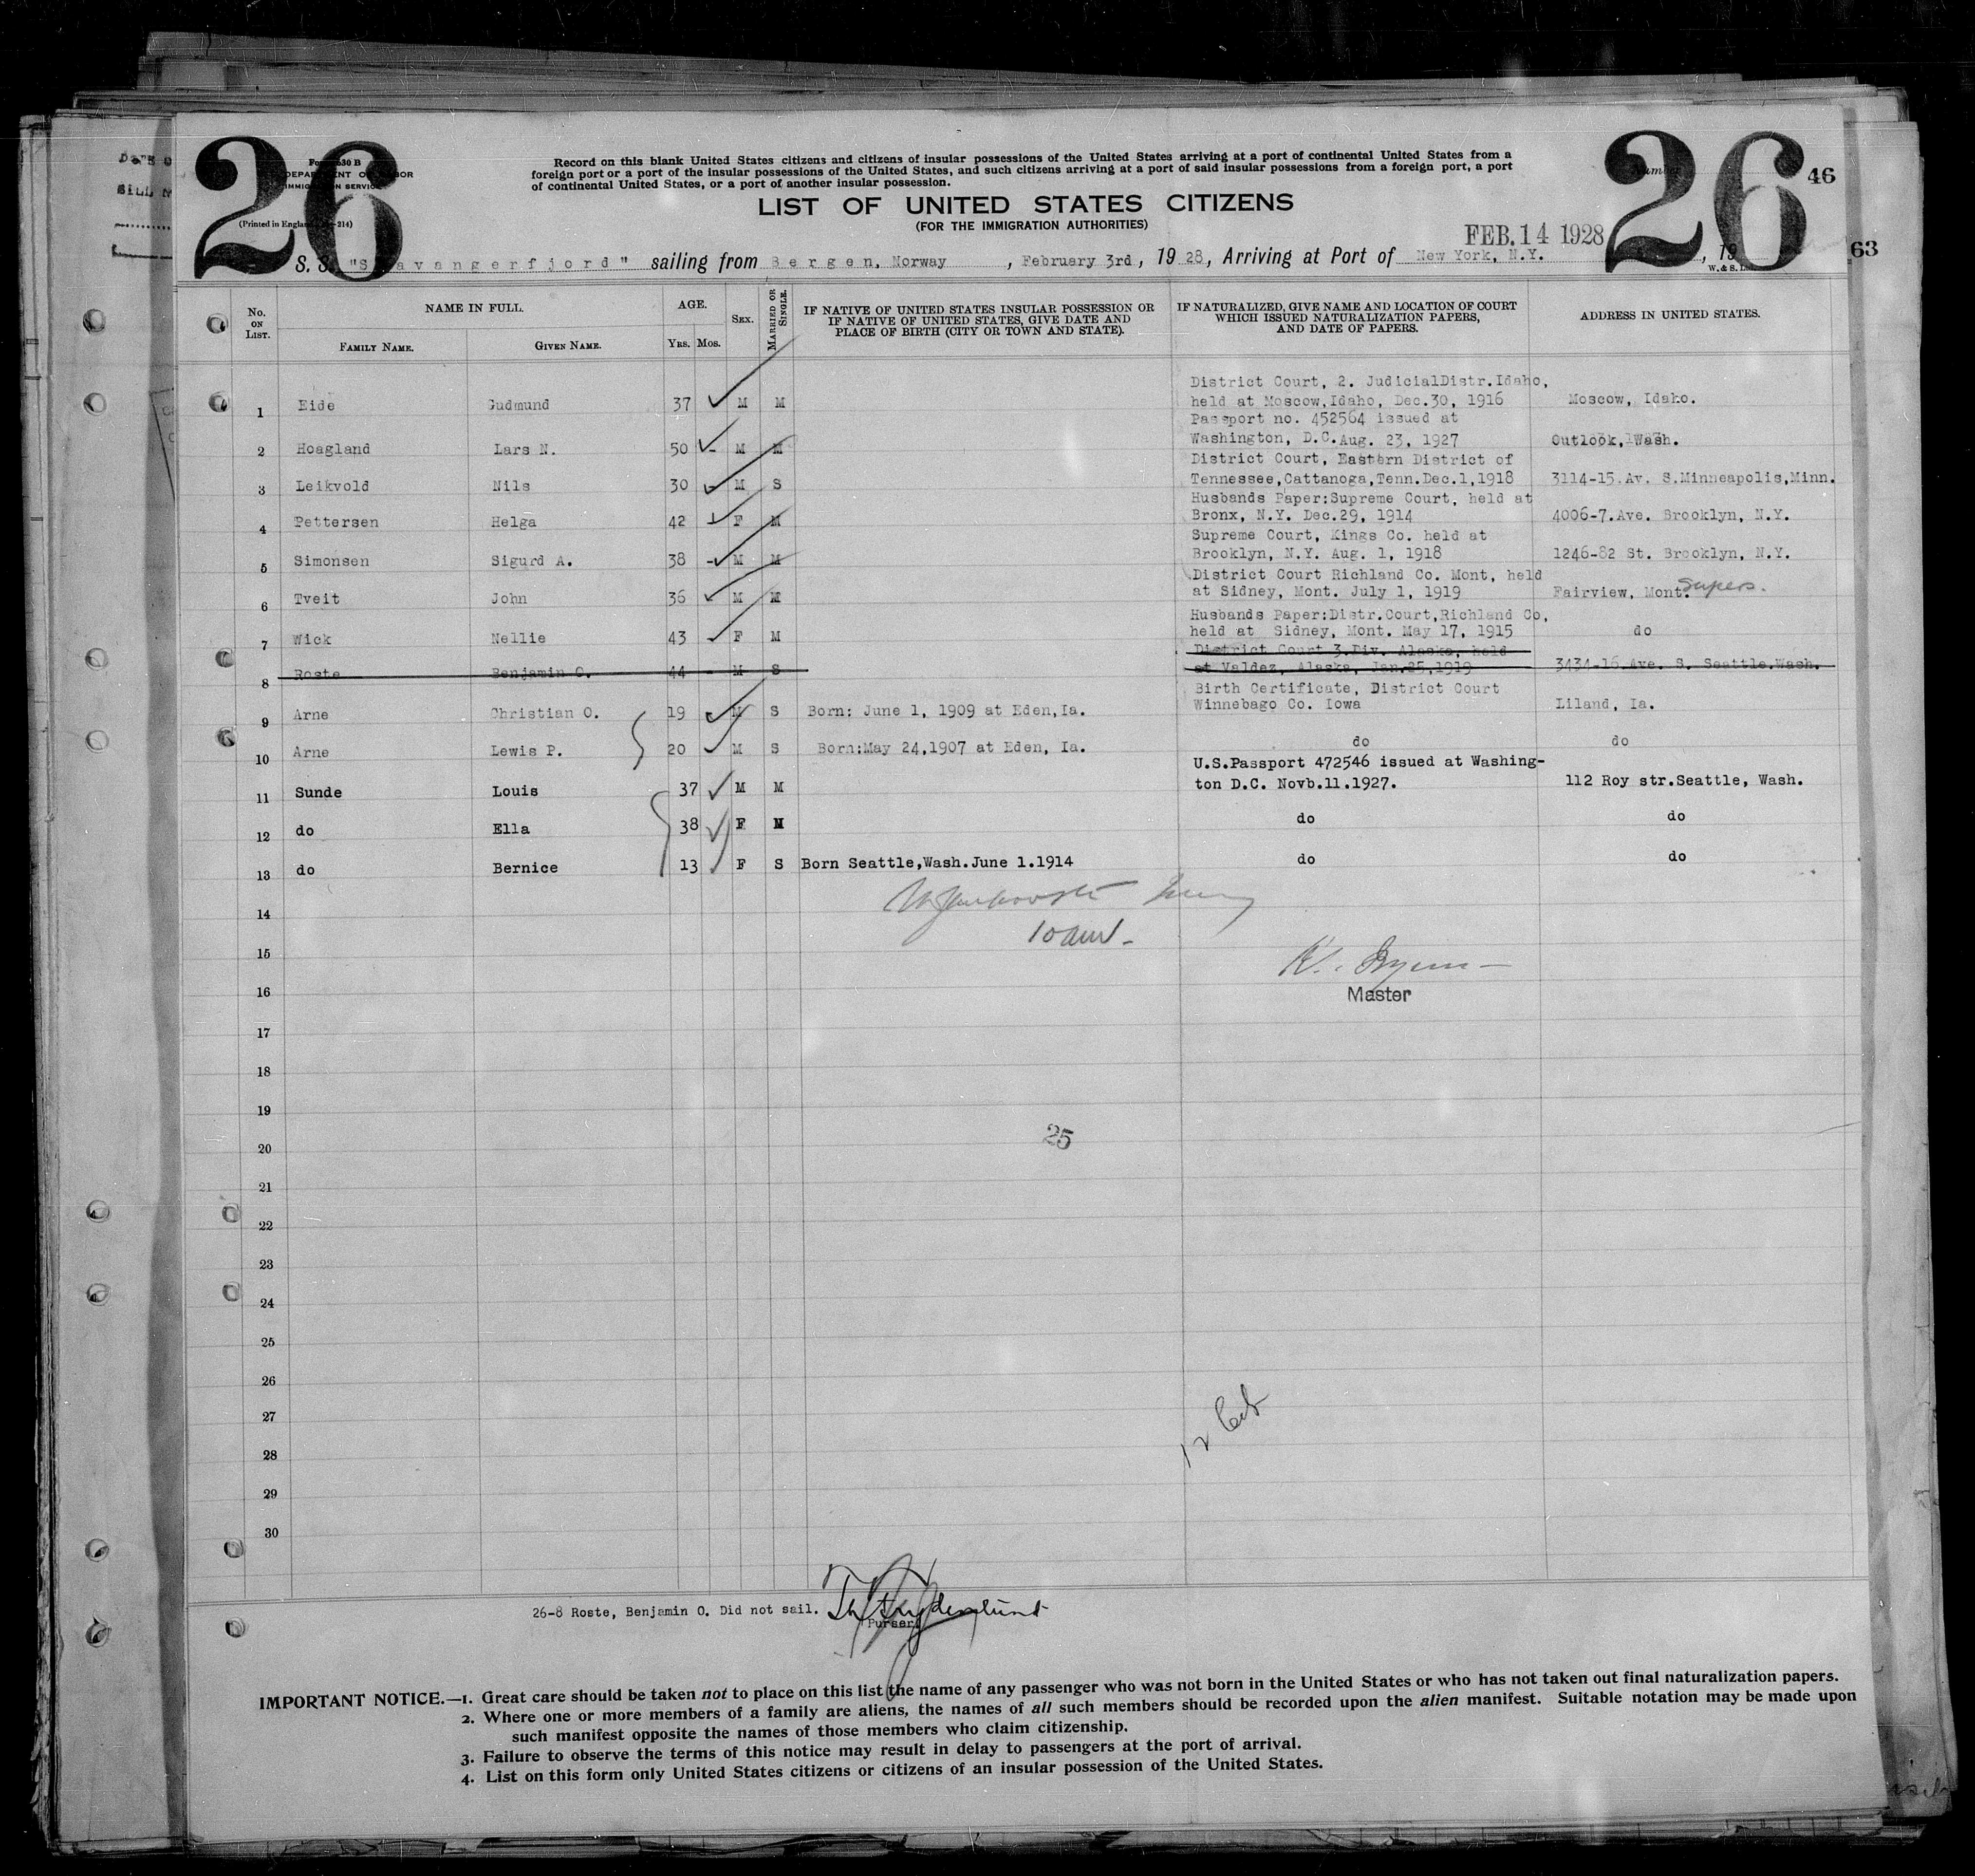 26
26
46
63
Form 630 B
DEPARTMENT OF LABOR
IMMIGRATION SERVICE
(Printed in England -214)
Number
Record on this blank United States citizens and citizens of insular possessions of the United States arriving at a port of continental United States from a
foreign port or a port of the insular possessions of the United States, and such citizens arriving at a port of said insular possessions from a foreign port, a port
of continental United States, or a port of another insular possession.
LIST OF UNITED STATES CITIZENS
(FOR THE IMMIGRATION AUTHORITIES)
FEB. 14 1928
S. S. "Stavangerfjord" sailing from Bergen, Norway, February 3rd, 1928, Arriving at Port of New York, N.Y. , 19
W. & S. Ltd.
No. ON LIST. NAME IN FULL. AGE. SEX. MARRIED OR SINGLE. IF NATIVE OF UNITED STATES INSULAR POSSESSION OR IF NATIVE OF UNITED STATES, GIVE DATE AND PLACE OF BIRTH (CITY OR TOWN AND STATE). IF NATURALIZED, GIVE NAME AND LOCATION OF COURT WHICH ISSUED NATURALIZATION PAPERS, AND DATE OF PAPERS. ADDRESS IN UNITED STATES.
FAMILY NAME. GIVEN NAME. YRS. MOS.
District Court, 2. JudicialDistr.Idaho,
1 Eide Gudmund 37 M M held at Moscow,Idaho, Dec.30, 1916 Moscow, Idaho.
Passport no. 452564 issued at
2 Hoagland Lars N. 50 - M M Washington, D.C.Aug. 23, 1927 Outlook, Wash.
District Court, Eastern District of
3 Leikvold Nils 30 - M S Tennessee,Cattanoga,Tenn.Dec.1,1918 3114-15.Av. S.Minneapolis,Minn.
Husbands Paper:Supreme Court, held at
4 Pettersen Helga 42 - F M Bronx, N.Y. Dec.29, 1914 4006-7.Ave. Brooklyn, N.Y.
Supreme Court, Kings Co. held at
5 Simonsen Sigurd A. 38 - M M Brooklyn, N.Y. Aug. 1, 1918 1246-82 St. Brooklyn, N.Y.
District Court Richland Co. Mont, held
6 Tveit John 36 - M M at Sidney, Mont. July 1, 1919 Fairview, Mont. supers.
Husbands Paper:Distr.Court,Richland Co,
7 Wick Nellie 43 - F M held at Sidney, Mont. May 17, 1915 do
District Court 3.Div. Alaska, held
8 Roste Benjamin O. 44 - M S at Valdez, Alaska, Jan.25,1919 3434-16.Ave. S. Seattle.Wash.
Birth Certificate, District Court
9 Arne Christian O. 19 - M S Born: June 1, 1909 at Eden,Ia. Winnebago Co. Iowa Liland, Ia.
10 Arne Lewis P. 20 M S Born:May 24,1907 at Eden, Ia. do do
U.S.Passport 472546 issued at Washing-
11 Sunde Louis 37 M M ton D.C. Novb.11.1927. 112 Roy str.Seattle, Wash.
12 do Ella 38 F M do do
13 do Bernice 13 F S Born Seattle,Wash.June 1.1914 do do
14
10 am -
15
16 Master
17
18
19
20 25
21
22
23
24
25
26
27
12
28
29
30
26-8 Roste, Benjamin O. Did not sail.
Purser
IMPORTANT NOTICE.—1. Great care should be taken not to place on this list the name of any passenger who was not born in the United States or who has not taken out final naturalization papers.
2. Where one or more members of a family are aliens, the names of all such members should be recorded upon the alien manifest. Suitable notation may be made upon
such manifest opposite the names of those members who claim citizenship.
3. Failure to observe the terms of this notice may result in delay to passengers at the port of arrival.
4. List on this form only United States citizens or citizens of an insular possession of the United States.